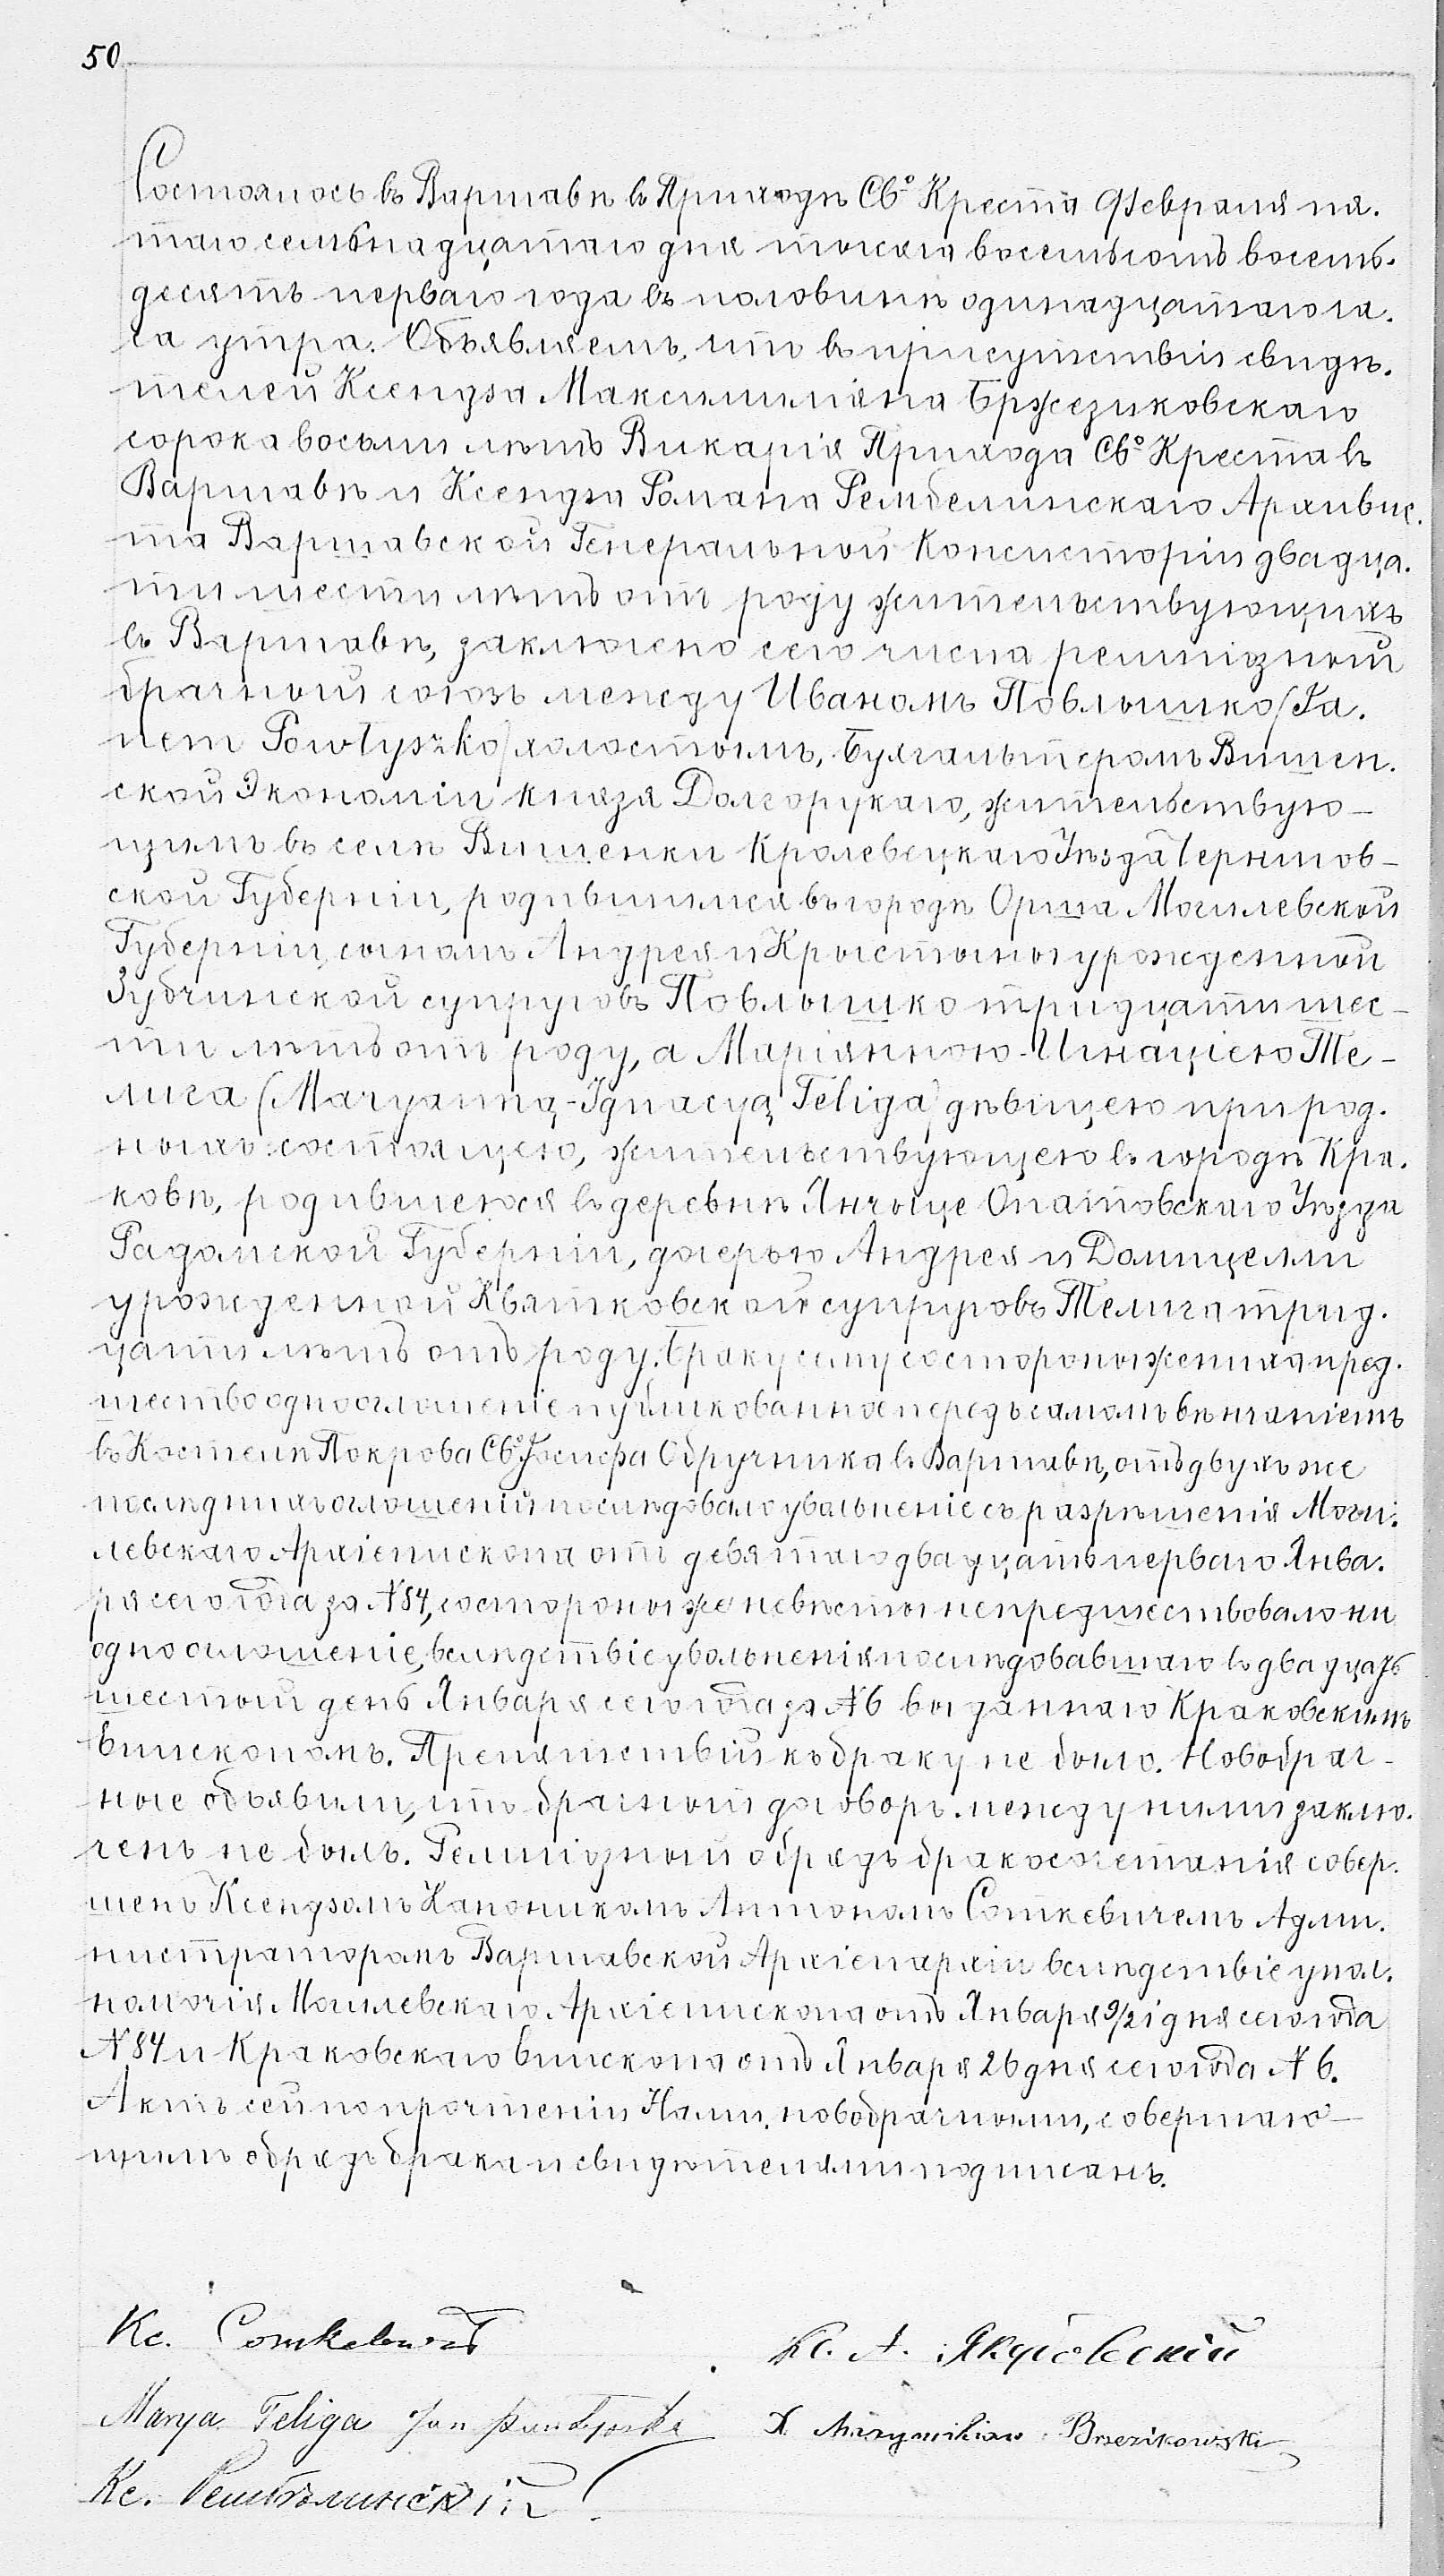 50
Состоялось въ Варшавѣ въ Приходѣ Св° Креста Февраля пя.
таго семьнадцатаго дня тысяча восемьсотъ восемь.
десятъ перваго года въ половинѣ одинадцатаго ча.
са утра. Объявляемъ, что въ присутствіи свидѣ.
телей Ксендза Максимиліяна Бржезиковскаго
сорока восьми лѣтъ Викарія Прихода Св° Креста въ
Варшавѣ и Ксендза Романа Рембелинскаго Архивис.
та Варшавской Генеральной Консисторіи двадца.
ти шести лѣтъ отъ роду жительствующихъ
въ Варшавѣ, заключено сего числа религіозный
брачный союзъ между Иваномъ Повлышко /Ja.
nem Powłyszko/ холостымъ, Бухгальтеромъ Вишен.
ской Экономіи Князя Долгорукаго, жительствую-
щимъ въ селѣ Вишенки Кролевецкаго Уѣзда Чернигов-
ской Губерніи, родившимся въ городѣ Орша Могилевской
Губерніи, сыномъ Андрея и Крыстыны урожденной
Зубчинской супруговъ Повлышко тридцати шес-
ти лѣтъ отъ роду, а Маріянною-Игнаціею Те-
лига (Maryanną-Ignacyą Teligą) дѣвицею при род.
ныхъ состоящею, жительствующею въ городѣ Кра.
ковѣ, родившеюся въ деревнѣ Янчыце Опатовскаго Уѣзда
Радомской Губерніи, дочерью Андрея и Домицелли
урожденной Квятковской супруговъ Телига трид.
цати лѣтъ отъ роду. Браку сему со стороны жениха пред.
шество одно оглошеніе публикованное передъ самомъ вѣнчаніемъ
въ Костелѣ Покрова Св° Іосифа Обручника въ Варшавѣ, отъ двухъ же
послѣднихъ оглошеній послѣдовало увольненіе съ разрѣшенія Моги.
левскаго Архіепископа отъ девятаго двадцать перваго Янва.
ря сего года за N 84, со стороны же невѣсты непредшествовало ни
одно оглошеніе, вслѣдствіе увольненія послѣдовавшаго въ двадцать
шестый день Января сего года за N 6 выданнаго Краковскимъ
Епископомъ. Препятствій къ браку не было. Новобрач-
ные объявили, что брачный договоръ между ними заклю.
ченъ не былъ. Религіозный обрядъ бракосочетанія совер.
шенъ Ксендзомъ Каноникомъ Антономъ Соткевичемъ Адми.
нистраторомъ Варшавской Архіепархіи вслѣдствіе упол.
номочія Могилевскаго Архіепископа отъ Января 9/21 дня сего года
N 84 и Краковскаго Епископа отъ Января 26 дня сего года N 6.
Актъ сей по прочтеніи Нами, новобрачными, совершаю-
щимъ обрядъ брака и свидѣтелями подписанъ.
Кс. Соткевичъ
Кс. А. Якубовскій
Marya Teliga Jan Powłyszko
X. Maxymilian Brzezikowski
Кс. Рембѣлинскій